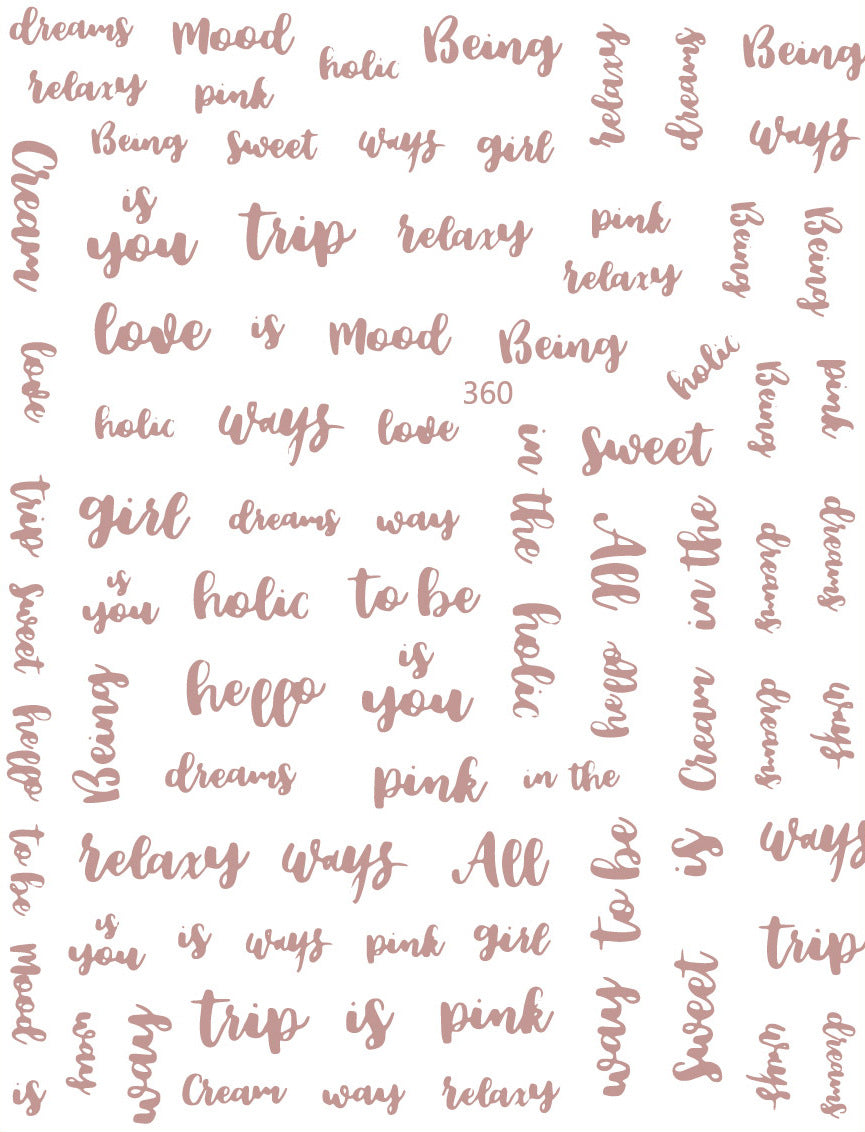 dreams Mood holic Being relaxy dreams Being
relaxy pink
Being sweet ways girl ways
Cream
is
you trip relaxy pink Being Being
relaxy
love is Mood Being
love holic Being pink
360
holic ways love in the sweet
trip girl dreams way All in the dreams dreams
sweet is
you holic to be holic
hello Being hello is
you hello Cream dreams ways
dreams pink in the
to be relaxy ways All to be is ways
Mood is
you is ways pink girl way sweet trip
way way trip is pink ways dreams
is Cream way relaxy